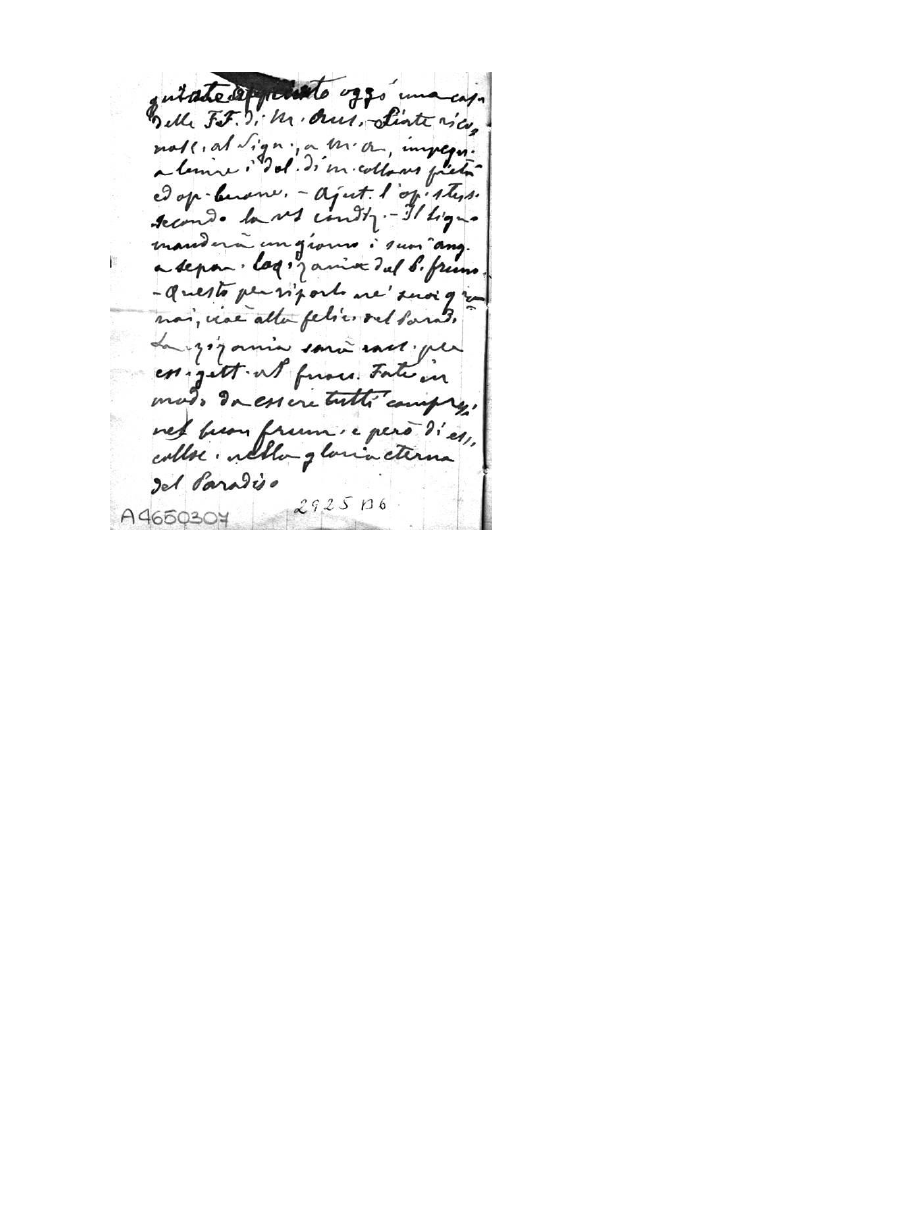 oggi una casa
delle F.F. di M. Aus. - Siate rico,
nosc. al Sign., a M. A., impegn.
a lenire i dol. di m. colla vs pietà
ed op. buone. - Ajut. l'op. stess.
secondo la vs condiz. - Il Sign
manderà un giorno i suoi ang.
a separ. la zizania dal b. frum.
- Questo per riporlo ne' suoi gra
nai, cioè alla felic. del Parad.
La zizania sarà racc. per
ess. gett. al fuoco. Fate in
modo da essere tutti compresi
nel buon frum. e però di ess.
colloc. nella gloria eterna
del Paradiso
2925 B6
A4650307